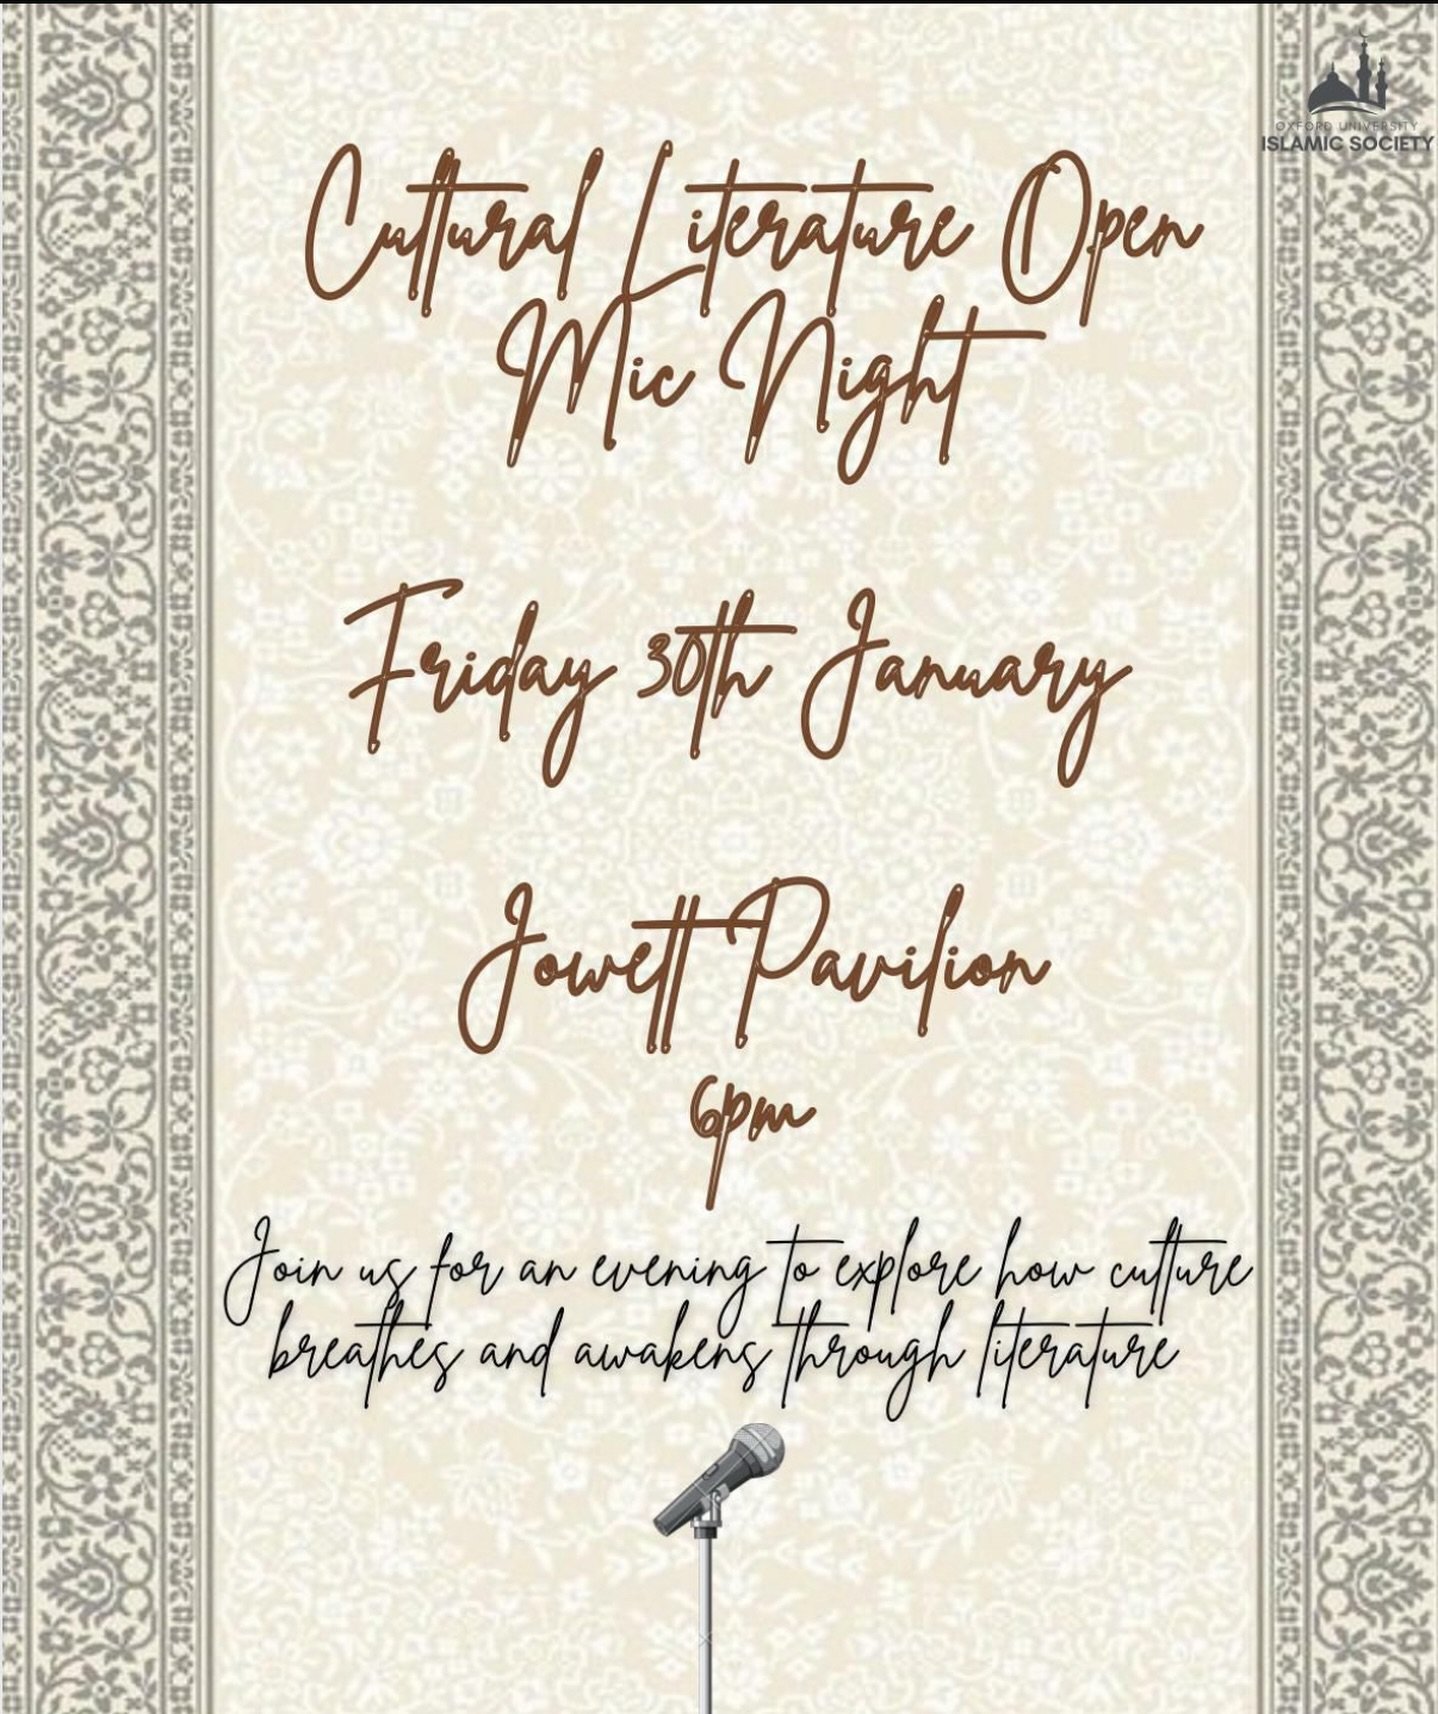 OXFORD UNIVERSITY
ISLAMIC SOCIETY
Cultural Literature Open
Mic Night
Friday 30th January
Jowett Pavilion
6pm
Join us for an evening to explore how culture
breathes and awakens through literature